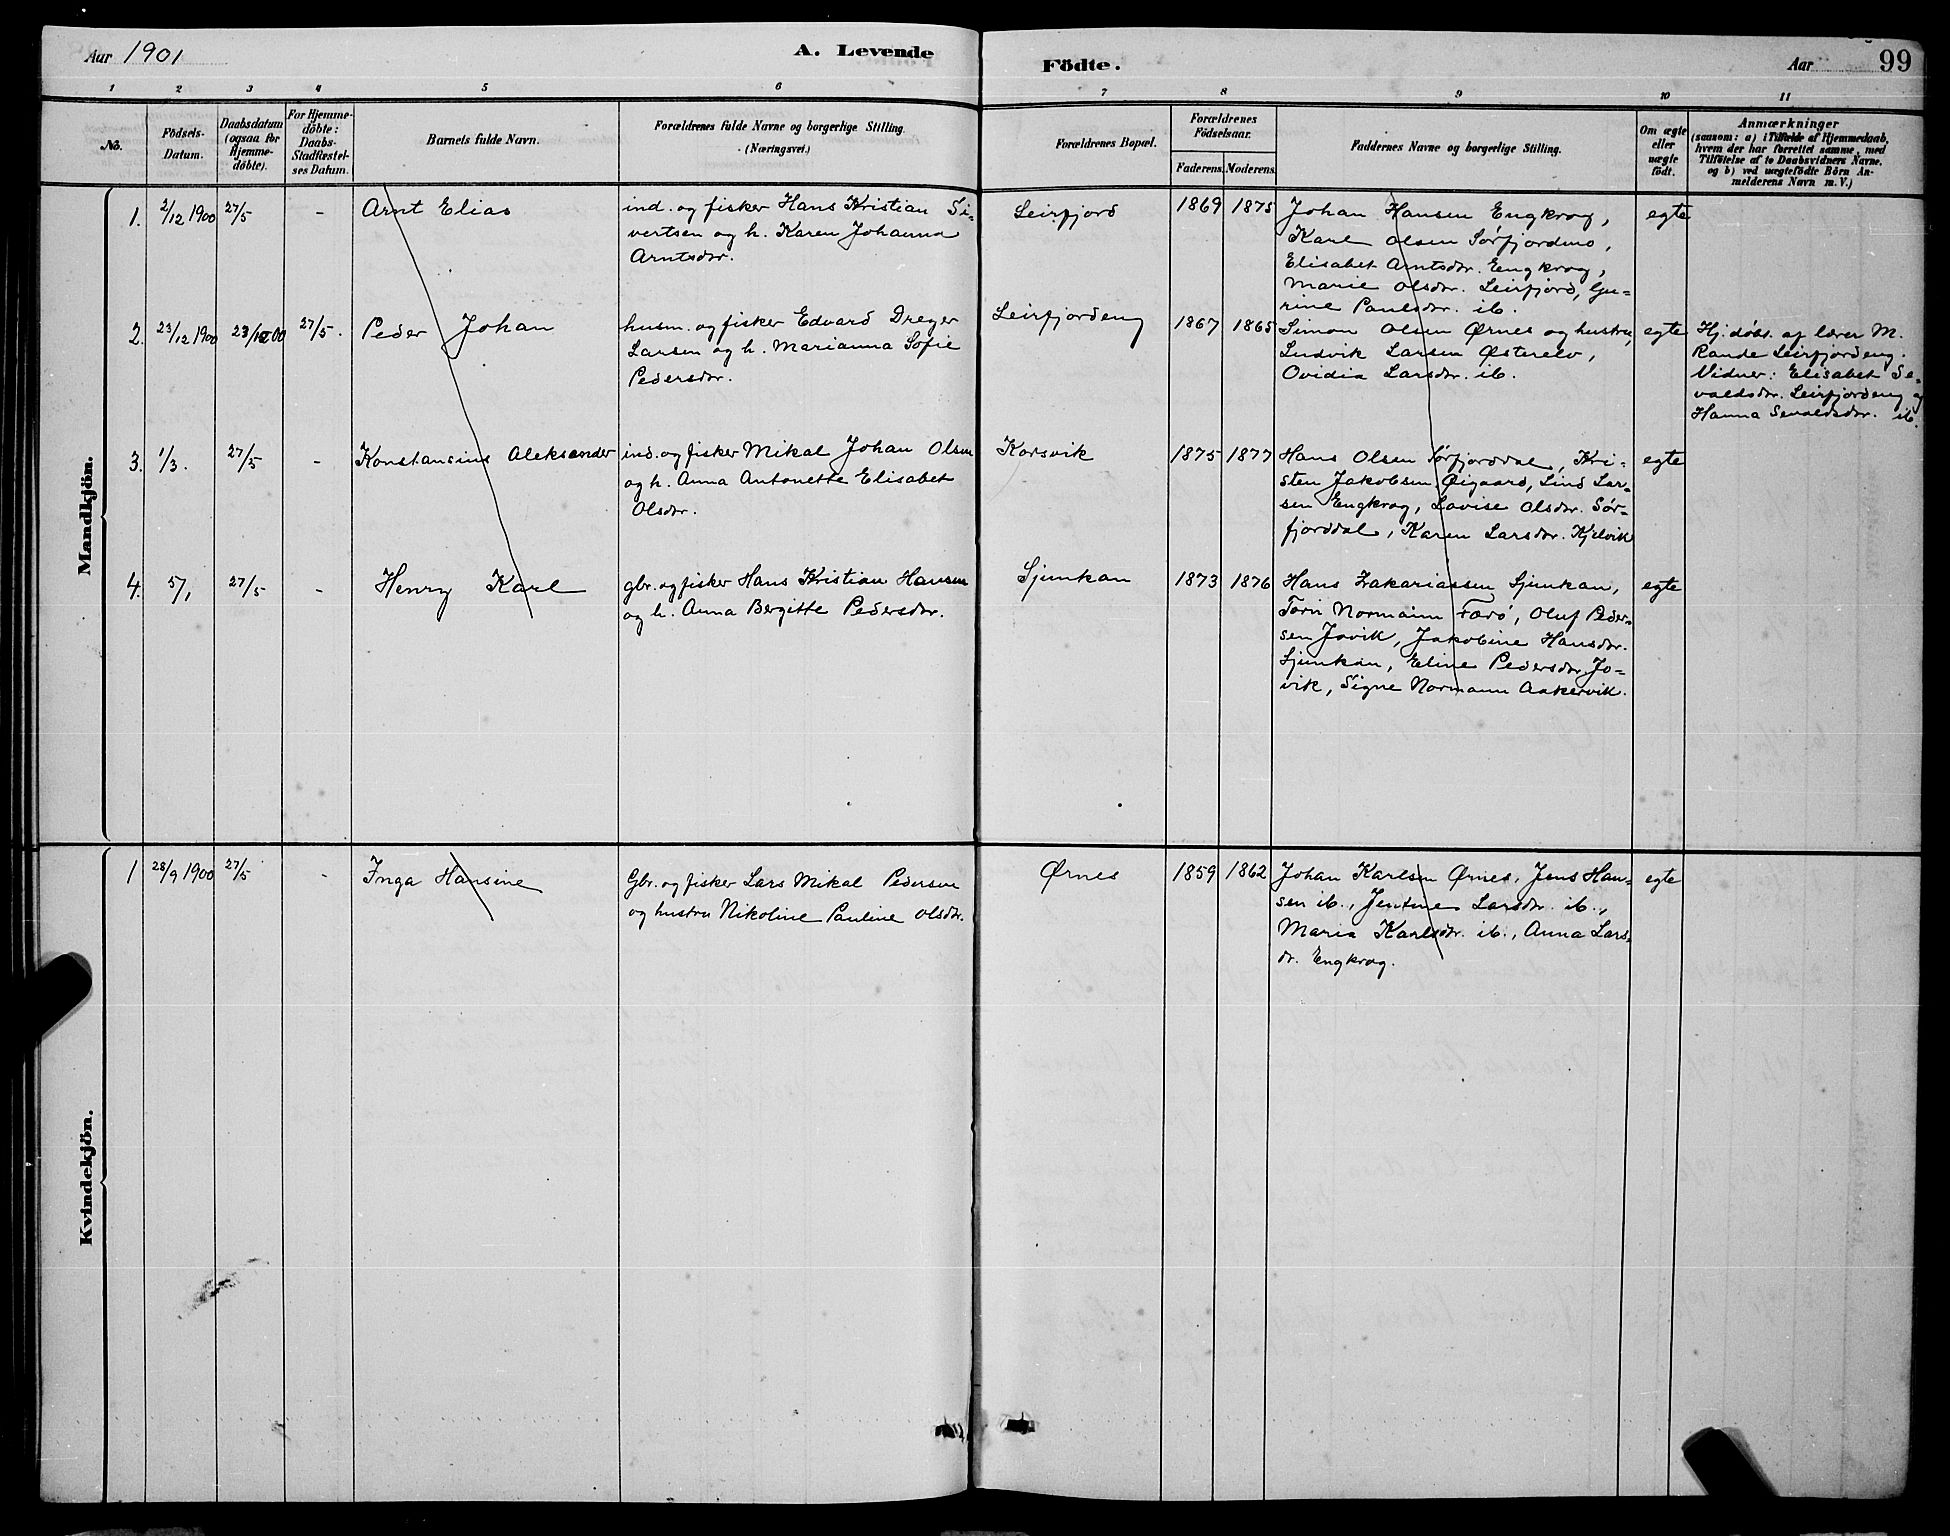 Aar 1901
A. Levende
Födte.
Aar
99
1 2 3 4 5 6 7 8 9 10 11
No.
Födsels-
Datum.
Daabsdatum
(ogsaa for
Hjemme-
döbte).
For Hjemme-
döbte:
Daabs-
Stadfæstel-
ses Datum.
Barnets fulde Navn.
Forældrenes fulde Navne og borgerlige Stilling.
(Næringsvei.)
Forældrenes Bopæl.
Forældrenes
Födselsaar.
Faderens. Moderens.
Faddernes Navne og borgerlige Stilling.
Om ægte
eller
uægte
födt.
Anmærkninger
(saasom: a) i Tilfælde af Hjemmedaab,
hvem der har forrettet samme, med
Tilföielse af to Daabsvidners Navne,
og b) ved uægtefödte Börn An-
melderens Navn m. V.)
Mandkjön.
1. 2/12 1900 27/5 - Arnt Elias
ind. og fisker Hans Kristian Si-
vertsen og h. Karen Johanna
Arntsdr.
Leirfjord 1869 1875
Johan Hansen Engkrog,
Karl Olsen Sørfjordmo,
Elisabet Arntsdr. Engkrog,
Marie Olsdr. Leirfjord, Gu-
rine Paulsdr. ib.
egte
2. 23/12 1900 23/12 00 27/5. Peder Johan
husm. og fisker Edvard Dreyer
Larsen og h. Marianna Sofie
Pedersdr.
Leirfjordeng 1867 1865
Simon Olsen Ørnes og hustru,
Ludvik Larsen Østerelv,
Ovidia Larsdr. ib.
egte
Hj.døbt af lærer M.
Rande Leirfjordeng.
Vidner: Elisabet Se-
valdsdr. Leirfjordeng og
Hanna Sevaldsdr. ib.
3. 1/3. 27/5 - Konstansius Aleksander
ind. og fisker Mikal Johan Olsen
og h. Anna Antonette Elisabet
Olsdr.
Korsvik 1875 1877
Hans Olsen Sørfjorddal, Kri-
sten Jakobsen Øigaard, Lind Lar-
sen Engkrog, Lovise Olsdr. Sør-
fjorddal, Karen Larsdr. Kjelvik
egte
4. 5/1 27/5 - Henry Karl
gbr. og fisker Hans Kristian Hansen
og h. Anna Bergitte Pedersdr.
Sjunkan 1873 1876
Hans Zakariassen Sjunkan,
Normann Færø, Oluf Peder-
sen Jovik, Jakobine Hansdr.
Sjunkan, Eline Pedersdr. Jo-
vik, Signe Normann Aakervik.
egte
Kvindekjön.
1 28/9 1900 27/5 - Inga Hansine
Gbr. og fisker Lars Mikal Pedersen
og hustru Nikoline Pauline Olsdr.
Ørnes 1859 1862
Johan Karlsen Ørnes, Jens Han-
sen ib., Jentine Larsdr. ib.,
Maria Karlsdr. ib., Anna Lars-
dr. Engkrog.
egte